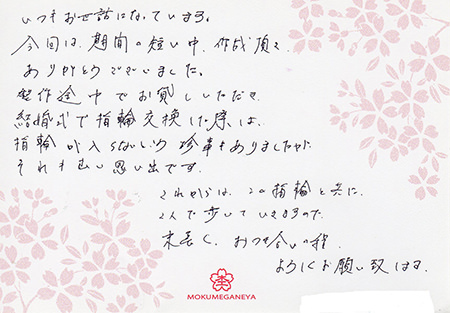 いつもお世話になっています。
今回は、期間の短い中、作成頂き
ありがとうございました。
製作途中でお貸しいただき
結婚式で指輪交換した際は、
指輪が入らないという珍事もありましたが
それも良い思い出です。
これからは、この指輪と共に、
2人で歩いていきますので
末長く、おつき合いの程、
よろしくお願い致します。
MOKUMEGANEYA